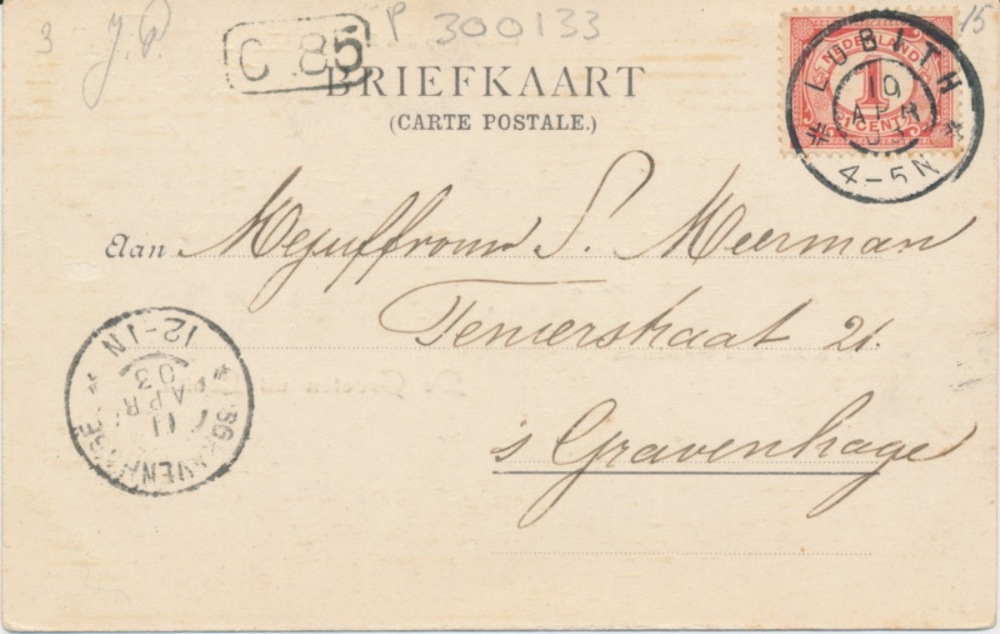 3 J.P. C 85 P 300133 15
BRIEFKAART
(CARTE POSTALE.)
NEDERLAND
1
CENT
LOBITH
10
APR
03
4-5N
Aan Mejuffrouw S. Meerman
Tenierstraat 21.
's Gravenhage
12-1N
11
APR
03